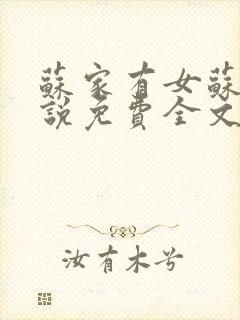 蘇家有女蘇
說免費全文
汝有木兮